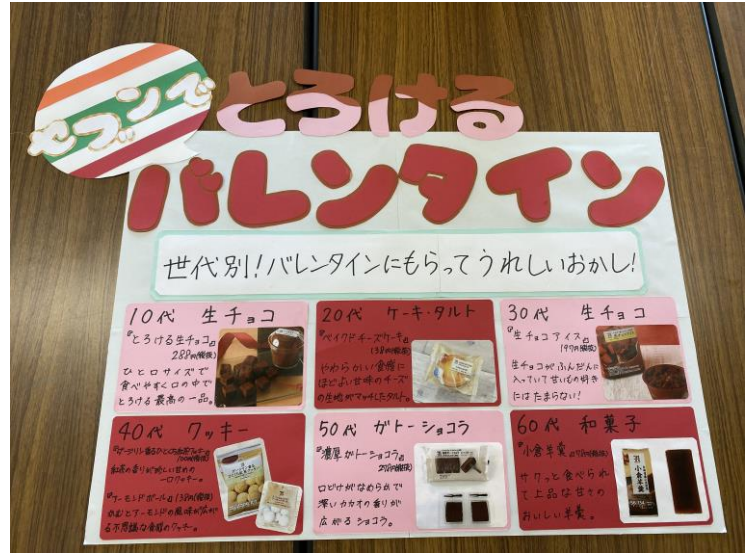 セブンで
とろける
バレンタイン
世代別!バレンタインにもらってうれしいおかし!
10代 生チョコ
『とろける生チョコ』
288円(税抜)
ひとロサイズで
食べやすく口の中で
とろける最高の一品。
20代 ケーキ・タルト
『ベイクドチーズケーキ』
138円(税抜)
やわらかい食感に
ほどよい甘味のチーズ
の生地がマッチしたタルト。
30代 生チョコ
『生チョコアイス』
197円(税抜)
生チョコがふんだんに
入っていて甘いもの好き
にはたまらない!
40代 クッキー
紅茶の香りが
一口クッキー。
『アーモンドボール』138円(税抜)
アーモンドの風味が広が
る不思議な食感のクッキー。
50代 ガトーショコラ
『濃厚ガトーショコラ』
口どけがなめらかで
深いカカオの香りが
広がるショコラ。
60代 和菓子
『小倉羊羹』
サクッと食べられ
て上品な甘さの
おいしい羊羹。
小倉羊羹